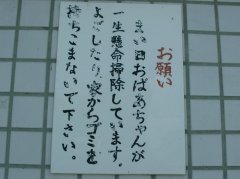 お願い
まい日おばあちゃんが
一生懸命掃除しています。
よごしたり、家からゴミを
持ちこまないで下さい。